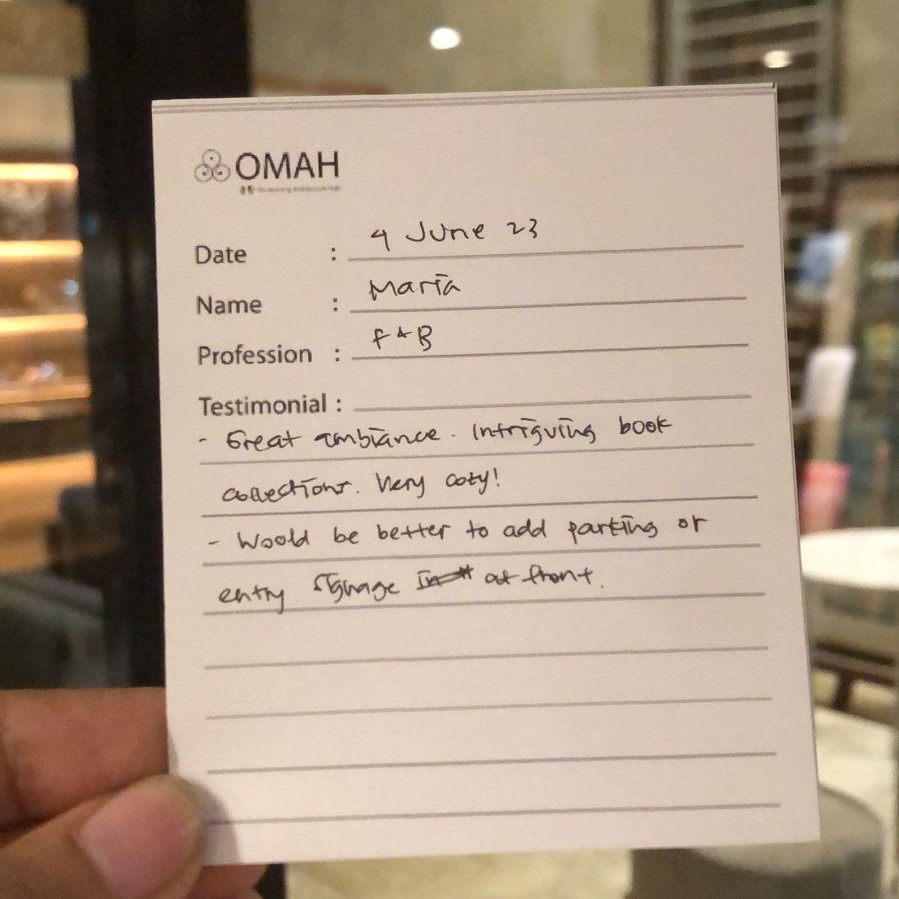 OMAH
Date : 4 June 23
Name : Maria
Profession : F & B
Testimonial :
- Great ambiance. Intriguing book
collections. Very cozy!
- Would be better to add parking or
entry signage at front.